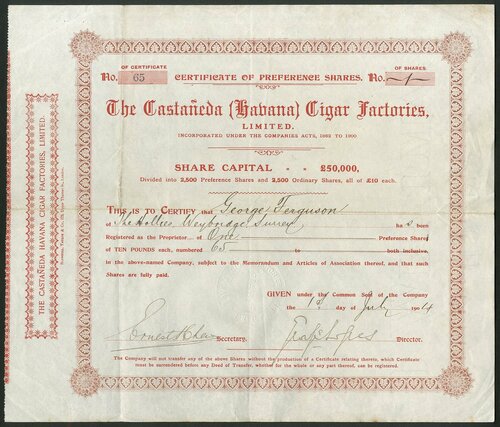 OF CERTIFICATE
No. 65
CERTIFICATE OF PREFERENCE SHARES.
OF SHARES.
No. 1
The Castañeda (Havana) Cigar Factories,
LIMITED.
INCORPORATED UNDER THE COMPANIES ACTS, 1862 TO 1900
SHARE CAPITAL - - £50,000,
Divided into 2,500 Preference Shares and 2,500 Ordinary Shares, all of £10 each.
THIS IS TO CERTIFY that George Ferguson
of The Hollies Weybridge Surrey has been
Registered as the Proprietor... of One Preference Shares
OF TEN POUNDS each, numbered 65 to both inclusive,
in the above-named Company, subject to the Memorandum and Articles of Association thereof, and that such
Shares are fully paid.
GIVEN under the Common Seal of the Company
the day of July 1904
Secretary.
Director.
The Company will not transfer any of the above Shares without the production of a Certificate relating thereto, which Certificate
must be surrendered before any Deed of Transfer, whether for the whole or any part thereof, can be registered.
THE CASTAÑEDA HAVANA CIGAR FACTORIES, LIMITED.